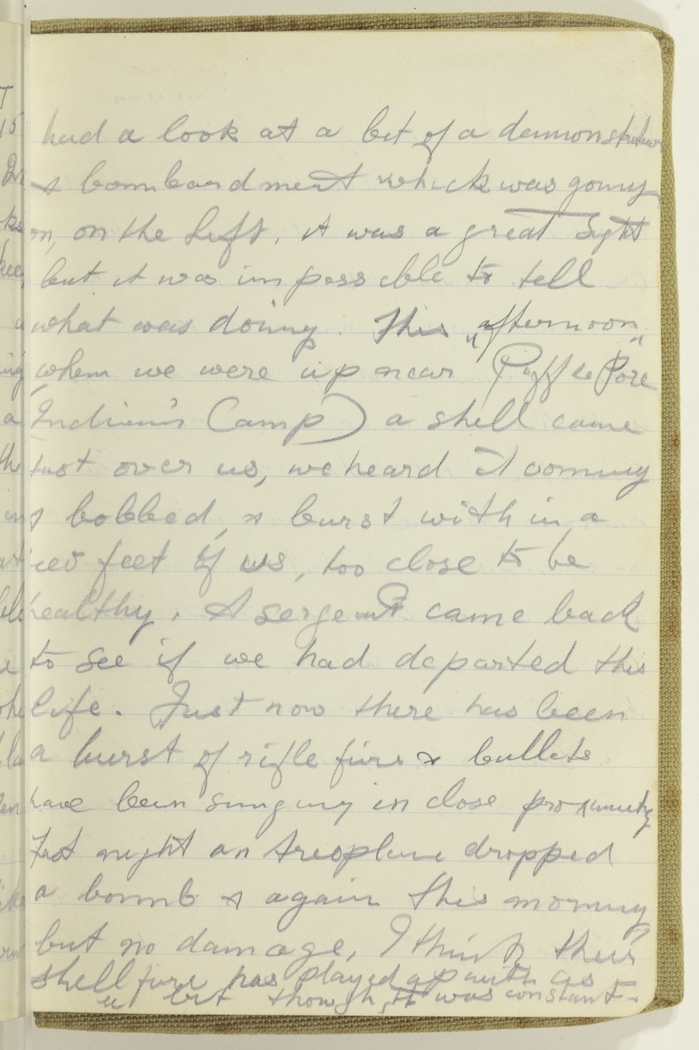 had a look at a bit of a demonstration
& bombardment which was going
on, on the left, it was a great sight
but it was impossible to tell
what was doing. This "afternoon"
when we were up near (
Indian's Camp) a shell came
just over us, we heard it coming
& bobbed, & burst within a
few feet of us, too close to be
healthy. A sergent came back
to see if we had departed this
life. Just now there has been
a burst of rifle fire & bullets
have been singing in close proximity
Last night an areoplane dropped
a bomb & again this morning
but no damage, I think their
shell fire has played up with us
but though it was constant